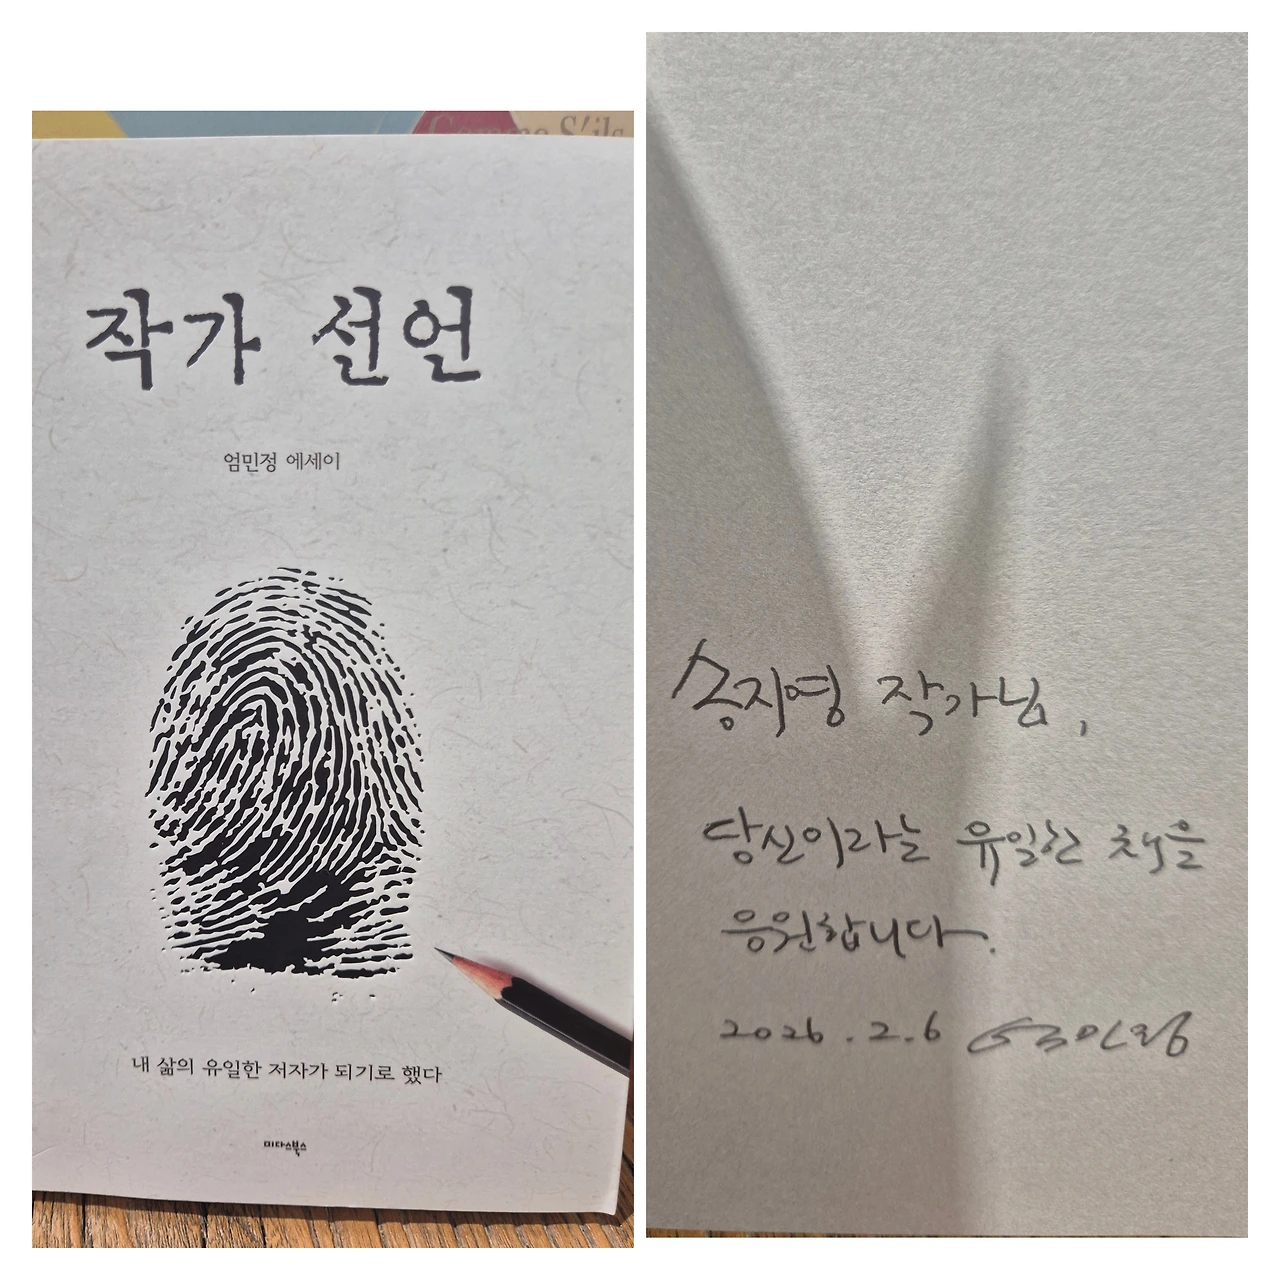 Comme S'ils
작가 선언
엄민정 에세이
내 삶의 유일한 저자가 되기로 했다
미다스북스
송지영 작가님,
당신이라는 유일한 책을
응원합니다.
2026.2.6 엄민정